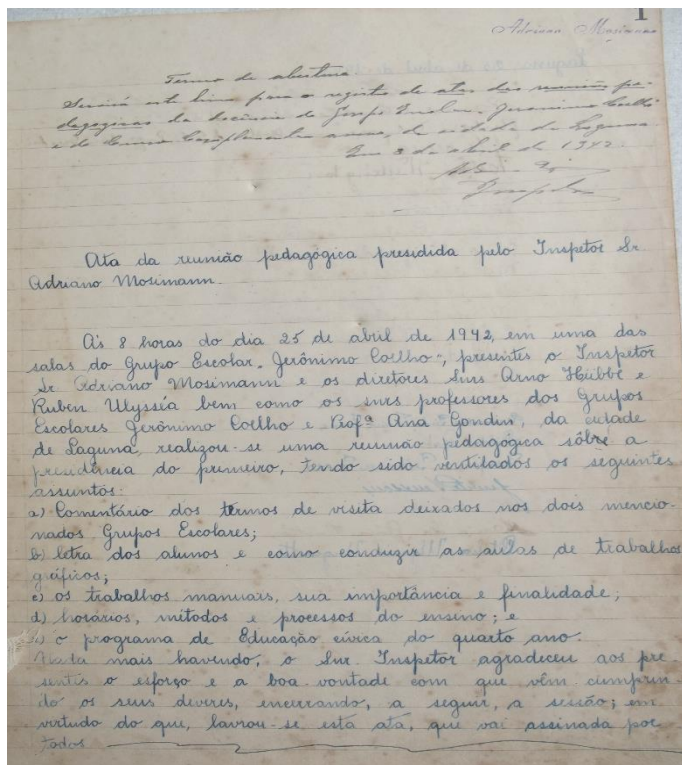 1
Adriano Mosimann
Termo de abertura
Servirá este livro para o registro de atas das reuniões pe-
dagogicas da Grupo Escolar Jeronimo Coelho
e do Curso Complementar anexo, da cidade da Laguna
Em 3 de abril de 1942.
Ata da reunião pedagógica presidida pelo Inspetor Sr
Adriano Mosimann.
Às 8 horas do dia 25 de abril de 1942, em uma das
salas do Grupo Escolar "Jerônimo Coelho", presentes o Inspetor
Sr Adriano Mosimann e os diretores Snrs Arno Hübbe e
Ruben Ulysséa bem como os snrs professores dos Grupos
Escolares Jerônimo Coelho e Profª Ana Gondin, da cidade
de Laguna, realizou-se uma reunião pedagógica sôbre a
presidência do primeiro, tendo sido ventilados os seguintes
assuntos:
a) Comentário dos termos de visita deixados nos dois mencio-
nados Grupos Escolares;
b) letra dos alunos e como conduzir as aulas de trabalhos
gráficos;
c) os trabalhos manuais, sua importância e finalidade;
d) horários, métodos e processos do ensino; e
o programa de Educação cívica do quarto ano.
Nada mais havendo, o Snr. Inspetor agradeceu aos pre-
sentes o esforço e a boa vontade com que vêm cumprin-
do os seus deveres, encerrando, a seguir, a sessão; em
virtude do que, lavrou-se esta ata, que vai assinada por
todos